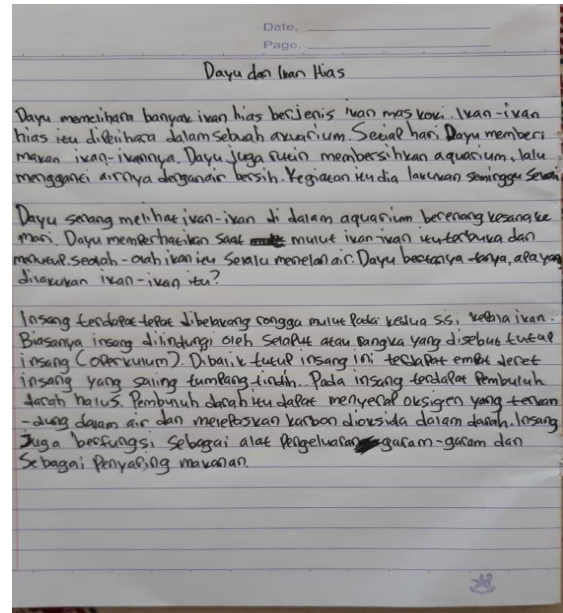 Date.
Page.
Dayu dan Ikan Hias
Dayu memelihara banyak ikan hias berjenis ikan mas koki. Ikan-ikan
hias itu dipelihara dalam sebuah akuarium. Setiap hari Dayu memberi
makan ikan-ikannya. Dayu juga rutin membersihkan aquarium, lalu
mengganti airnya dengan air bersih. Kegiatan itu dia lakukan seminggu sekali
Dayu senang melihat ikan-ikan di dalam aquarium berenang kesana ke
mari. Dayu memperhatikan saat mulut ikan-ikan itu terbuka dan
menutup. Seolah-olah ikan itu selalu menelan air. Dayu bertanya-tanya, apa yang
dilakukan ikan-ikan itu?
Insang terdapat tepat dibelakang rongga mulut pada kedua sisi kepala ikan.
Biasanya insang dilindungi oleh selaput atau rangka yang disebut tutup
insang (operkulum). Dibalik tutup insang ini terdapat empat deret
insang yang saling tumpang tindih. Pada insang terdapat pembuluh
darah halus. Pembuluh darah itu dapat menyerap oksigen yang terkan
-dung dalam air dan melepaskan karbon dioksida dalam darah. Insang
Juga berfungsi sebagai alat pengeluaran garam-garam dan
Sebagai penyaring makanan.